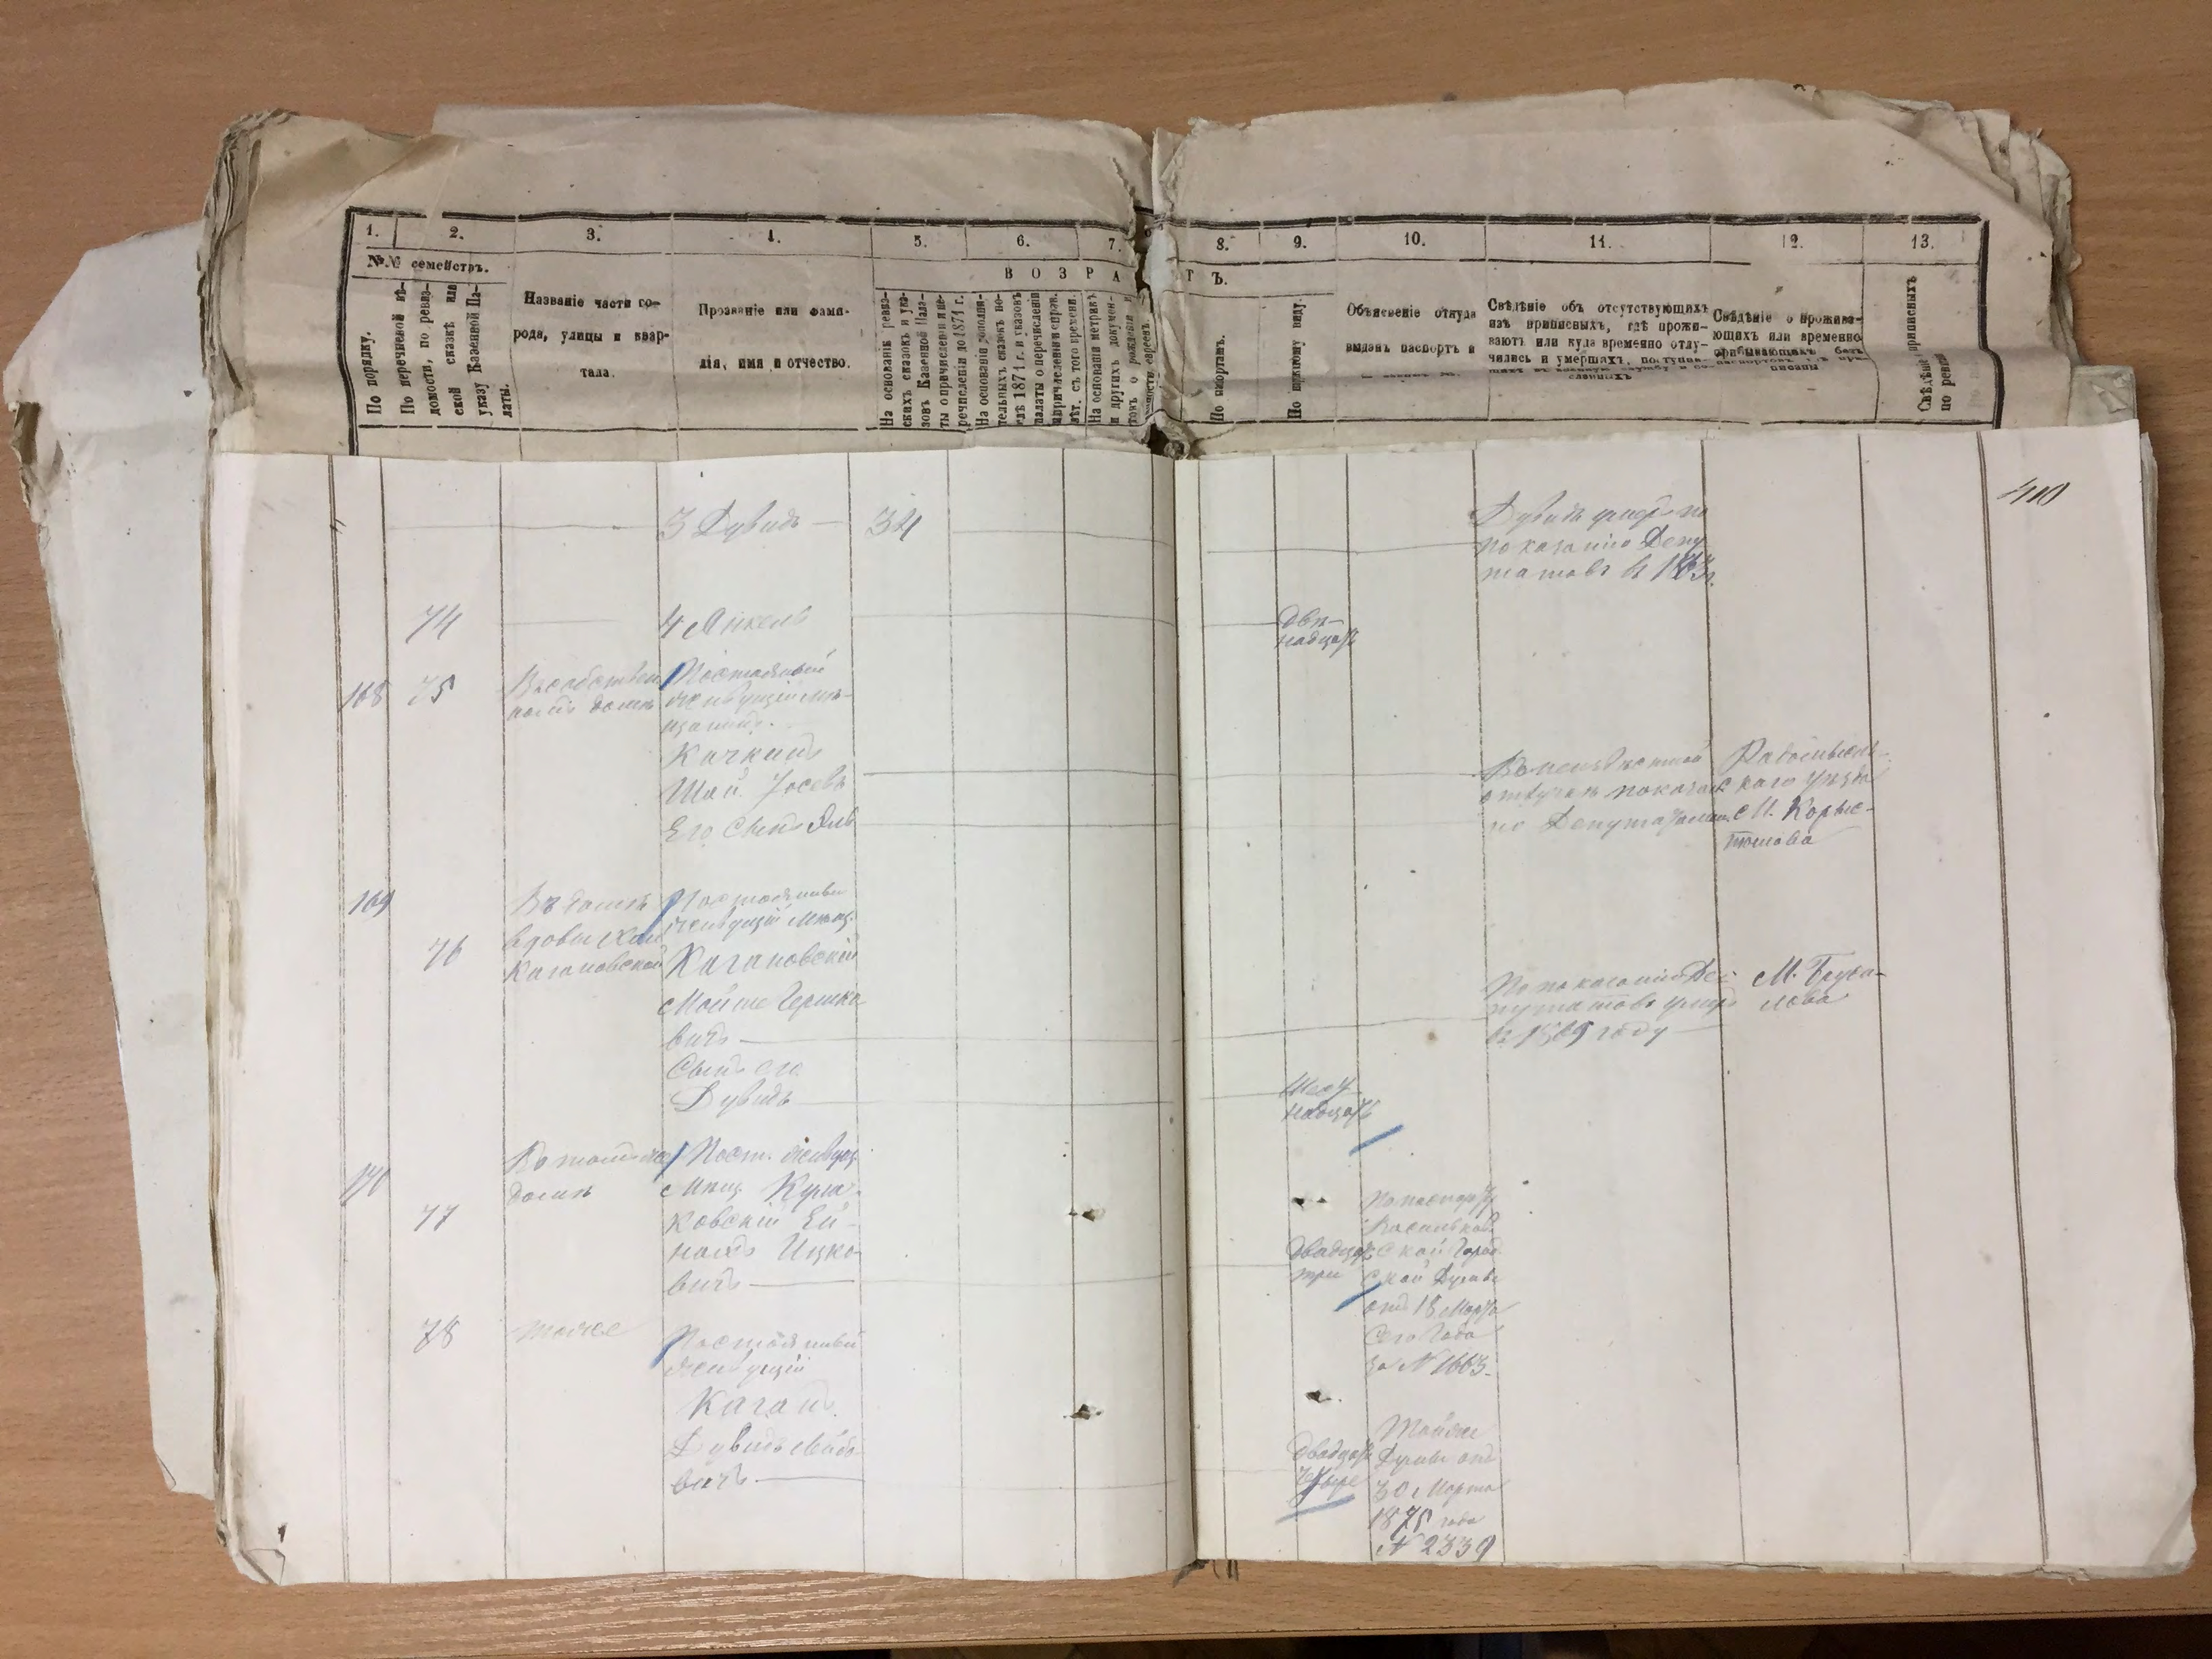 1.
2.
3.
4.
5.
6.
7.
8.
9.
10.
11.
12.
13.
№№ семействъ.
В О З Р А Т Ъ.
По порядку.
По перечневой вѣ-
домости, по ревиз-
ской сказкѣ или
указу Казенной Па-
латы.
Названіе части го-
рода, улицы и квар-
тала.
Прозваніе или фами-
лія, имя и отчество.
На основаніи ревиз-
скихъ сказокъ и ука-
зовъ Казенной Пала-
ты о причисленіи и пе-
речисленіи до 1871 г.
На основаніи дополни-
тельныхъ сказокъ по-
слѣ 1871 г. и указовъ
палаты о перечисленіи
и причисленіи евреевъ.
лѣт. съ того времени.
На основаніи метрикъ
и другихъ докумен-
товъ о рожденіи и
евреевъ
По паспорт.
По наружному виду.
Объясненіе откуда
выданъ паспортъ и
Свѣдѣніе объ отсутствующихъ
изъ приписныхъ, гдѣ прожи-
ваютъ или куда временно отлу-
чились и умершихъ, поступив-
шихъ въ военную службу и со-
сланныхъ
Свѣдѣніе о прожива-
ющихъ или временно
пребывающихъ безъ
паспортовъ
писаны
Свѣдѣн приписныхъ
по ревиз
410
3 Дувидъ — 34
Дувидъ умеръ по
показанію Депу-
татовъ въ 1863 г.
74
4 Янкель
Двѣ-
надцать
168 75
Въ собствен
номъ домѣ
Постоянный
живущій мѣ-
щанинъ.
Качкинъ
Шай. Іосевъ
Его Сынъ
Въ неизвѣстной
отлучкѣ показа
но Депутатами
Радомысль-
скаго уѣзда
М. Корыс-
тышова
169
76
Въ домѣ
вдовы
Кагановской
Постоянный
живущій мѣщ.
Кагановскій
Мойше Гершко
вичъ —
Сынъ его
Дувидъ
По показанію Де-
путатовъ умеръ
въ 1869 году
М. Бруси-
лова
Шест-
надцать
170
77
Въ томъ же
домѣ
Пост. живущ.
Мѣщ.
ковскій Ей-
нохъ Ицко-
вичъ —
двадцать
три
По паспорту
Васильков-
ской Город.
ской Думы
отъ 18 Марта
Сего Года
за № 1663.
78
тоже
Постоянный
живущій
Каганъ
Дувидъ Лейбо-
вичъ —
двадцать
четыре
Той же
Думы отъ
30 Марта
1875 года
№ 2339